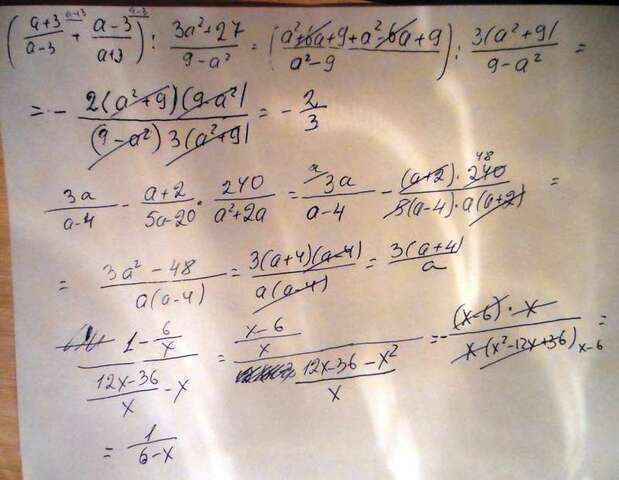 (a+3/a-3 ^a+3 + a-3/a+3 ^a-3) : 3a²+27/9-a² = (a²+6a+9+a²-6a+9/a²-9) : 3(a²+9)/9-a² =
= - 2(a²+9)(9-a²)/(9-a²)3(a²+9) = - 2/3
3a/a-4 - a+2/5a-20 · 240/a²+2a = ^a 3a/a-4 - (a+2)·240 ^48/5(a-4)·a(a+2) =
= 3a²-48/a(a-4) = 3(a+4)(a-4)/a(a-4) = 3(a+4)/a
1-6/x / 12x-36/x - x = x-6/x / 12x-36-x²/x = - (x-6)·x/x·(x²-12x+36) x-6 =
= 1/6-x